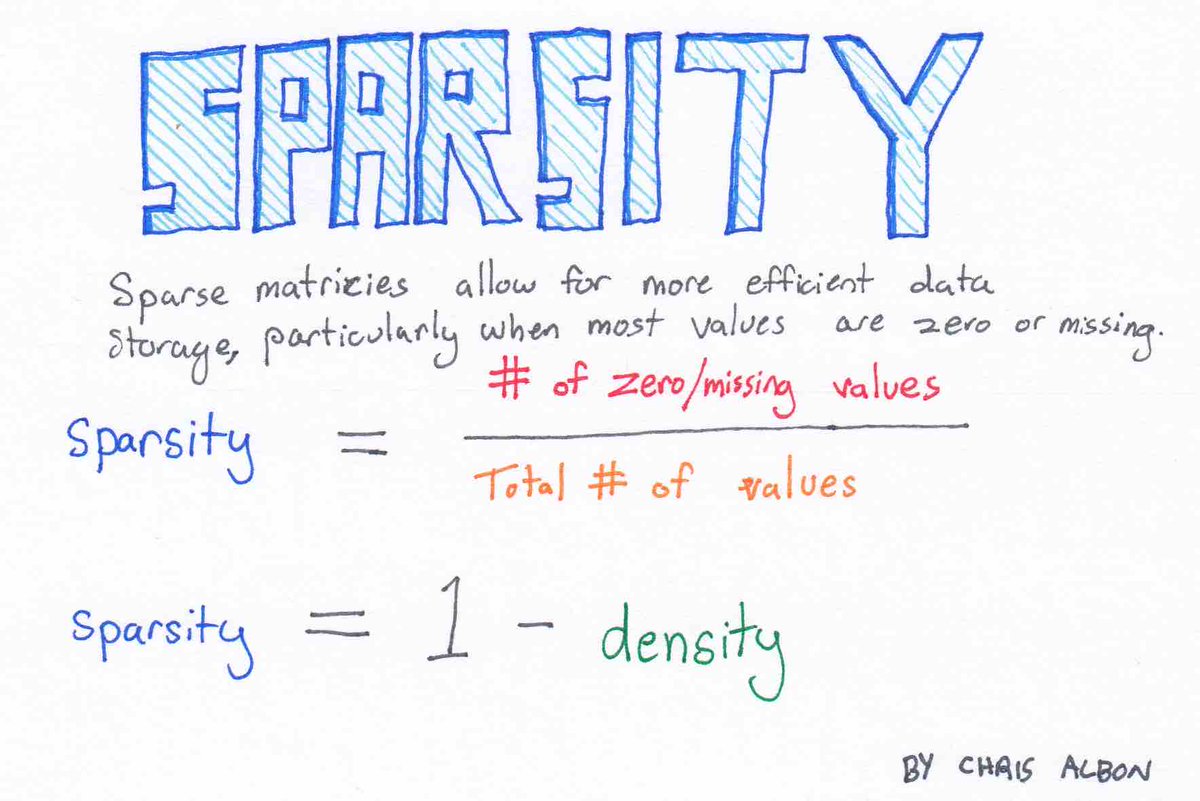 SPARSITY
Sparse matricies allow for more efficient data
storage, particularly when most values are zero or missing.
# of zero/missing values
Sparsity = 
Total # of values
Sparsity = 1 - density
BY CHRIS ALBON